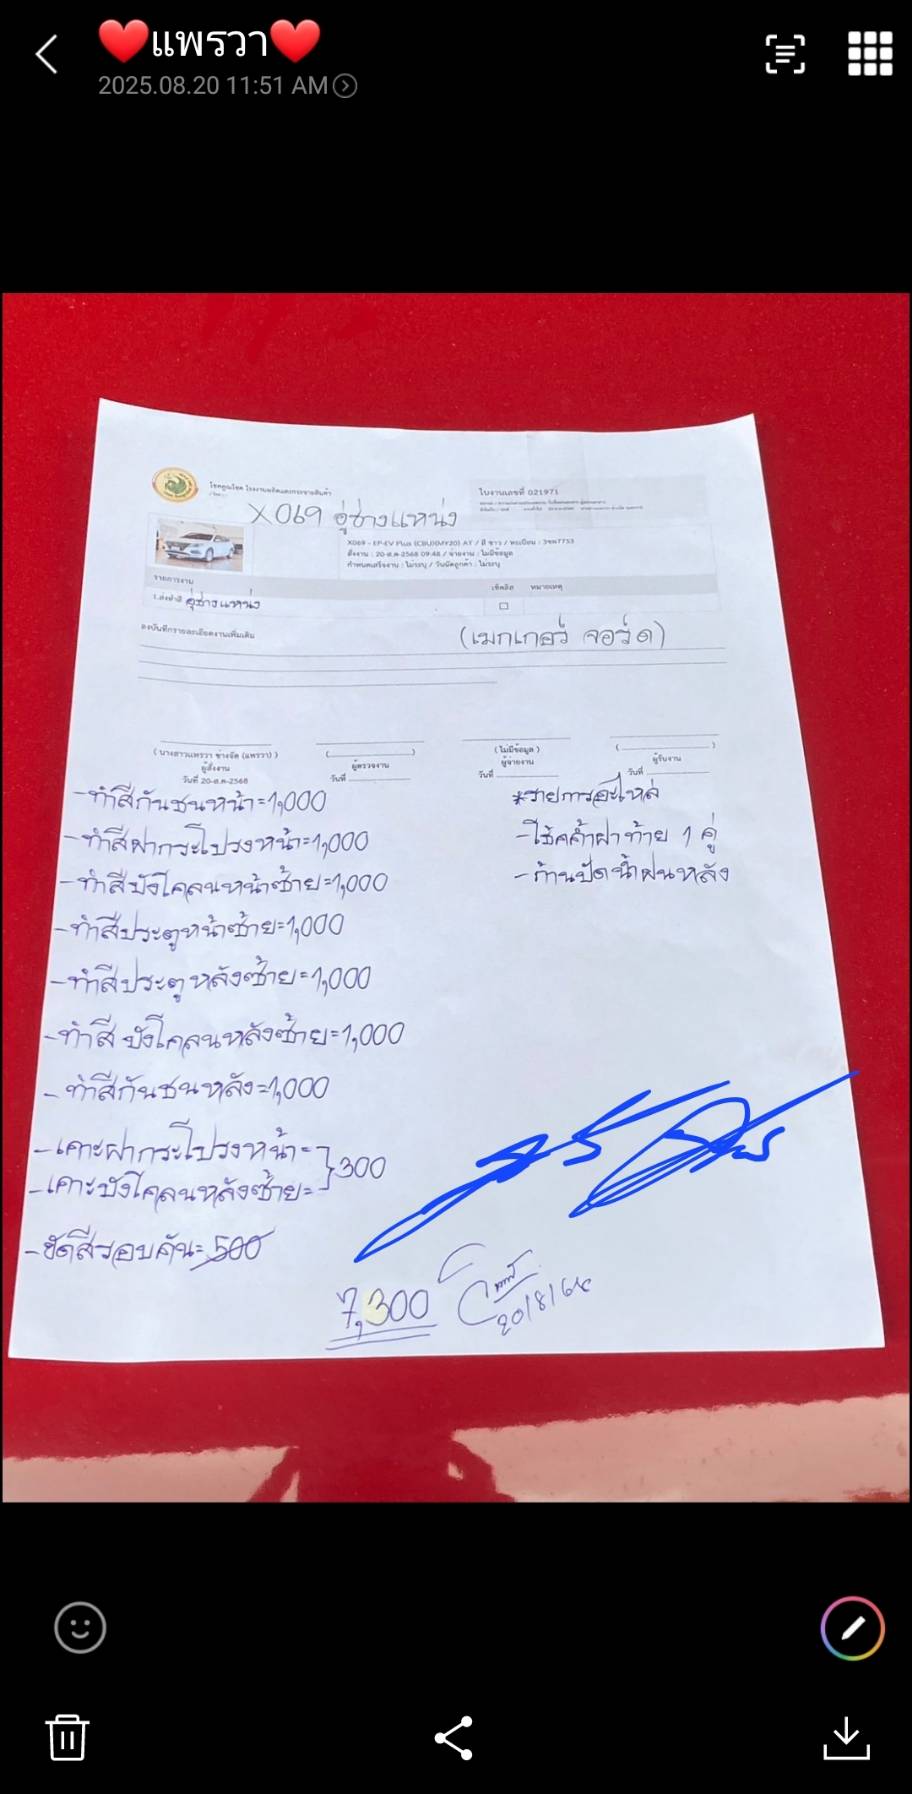 ❤️แพรวา❤️
2025.08.20 11:51 AM
โชคคูณโชค โรงงานผลิตและกระจายสินค้า
ใบงานเลขที่ 021971
X069 อู่ช่างแหน่ง
X069 - EP-EV Plus (CBU)(MY20) AT / สี ขาว / ทะเบียน : 3ขฆ7753
สั่งงาน : 20-ส.ค-2568 09:48 / จ่ายงาน : ไม่มีข้อมูล
กำหนดเสร็จงาน : ไม่ระบุ / วันนัดลูกค้า : ไม่ระบุ
รายการงาน เช็คลิส หมายเหตุ
1.ส่งทำสี อู่ช่างแหน่ง
ลงบันทึกรายละเอียดงานเพิ่มเติม
(เมกเกอร์ จอร์ด)
( นางสาวแพรวา ช่างฉัด (แพรวา) ) (ไม่มีข้อมูล )
ผู้สั่งงาน ผู้ตรวจงาน ผู้จ่ายงาน ผู้รับงาน
วันที่ 20-ส.ค-2568 วันที่ วันที่ วันที่
-ทำสีกันชนหน้า=1,000
-ทำสีฝากระโปรงหน้า=1,000
-ทำสีบังโคลนหน้าซ้าย=1,000
-ทำสีประตูหน้าซ้าย=1,000
-ทำสีประตูหลังซ้าย=1,000
-ทำสีบังโคลนหลังซ้าย=1,000
-ทำสีกันชนหลัง=1,000
-เคาะฝากระโปรงหน้า=
-เคาะบังโคลนหลังซ้าย=
}300
-ขัดสีรอบคัน=500
*รายการอะไหล่
-โช้คค้ำฝาท้าย 1 คู่
-ก้านปัดน้ำฝนหลัง
7,300
20/8/68